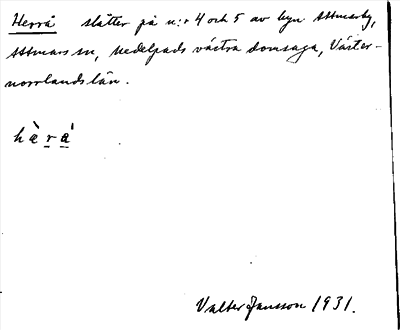 Herrå slåtter på n:r 4 och 5 av byn Attmarby,
Attmars sn, Medelpads västra domsaga, Väster-
norrlands län.
hèrá
Valter Jansson 1931.